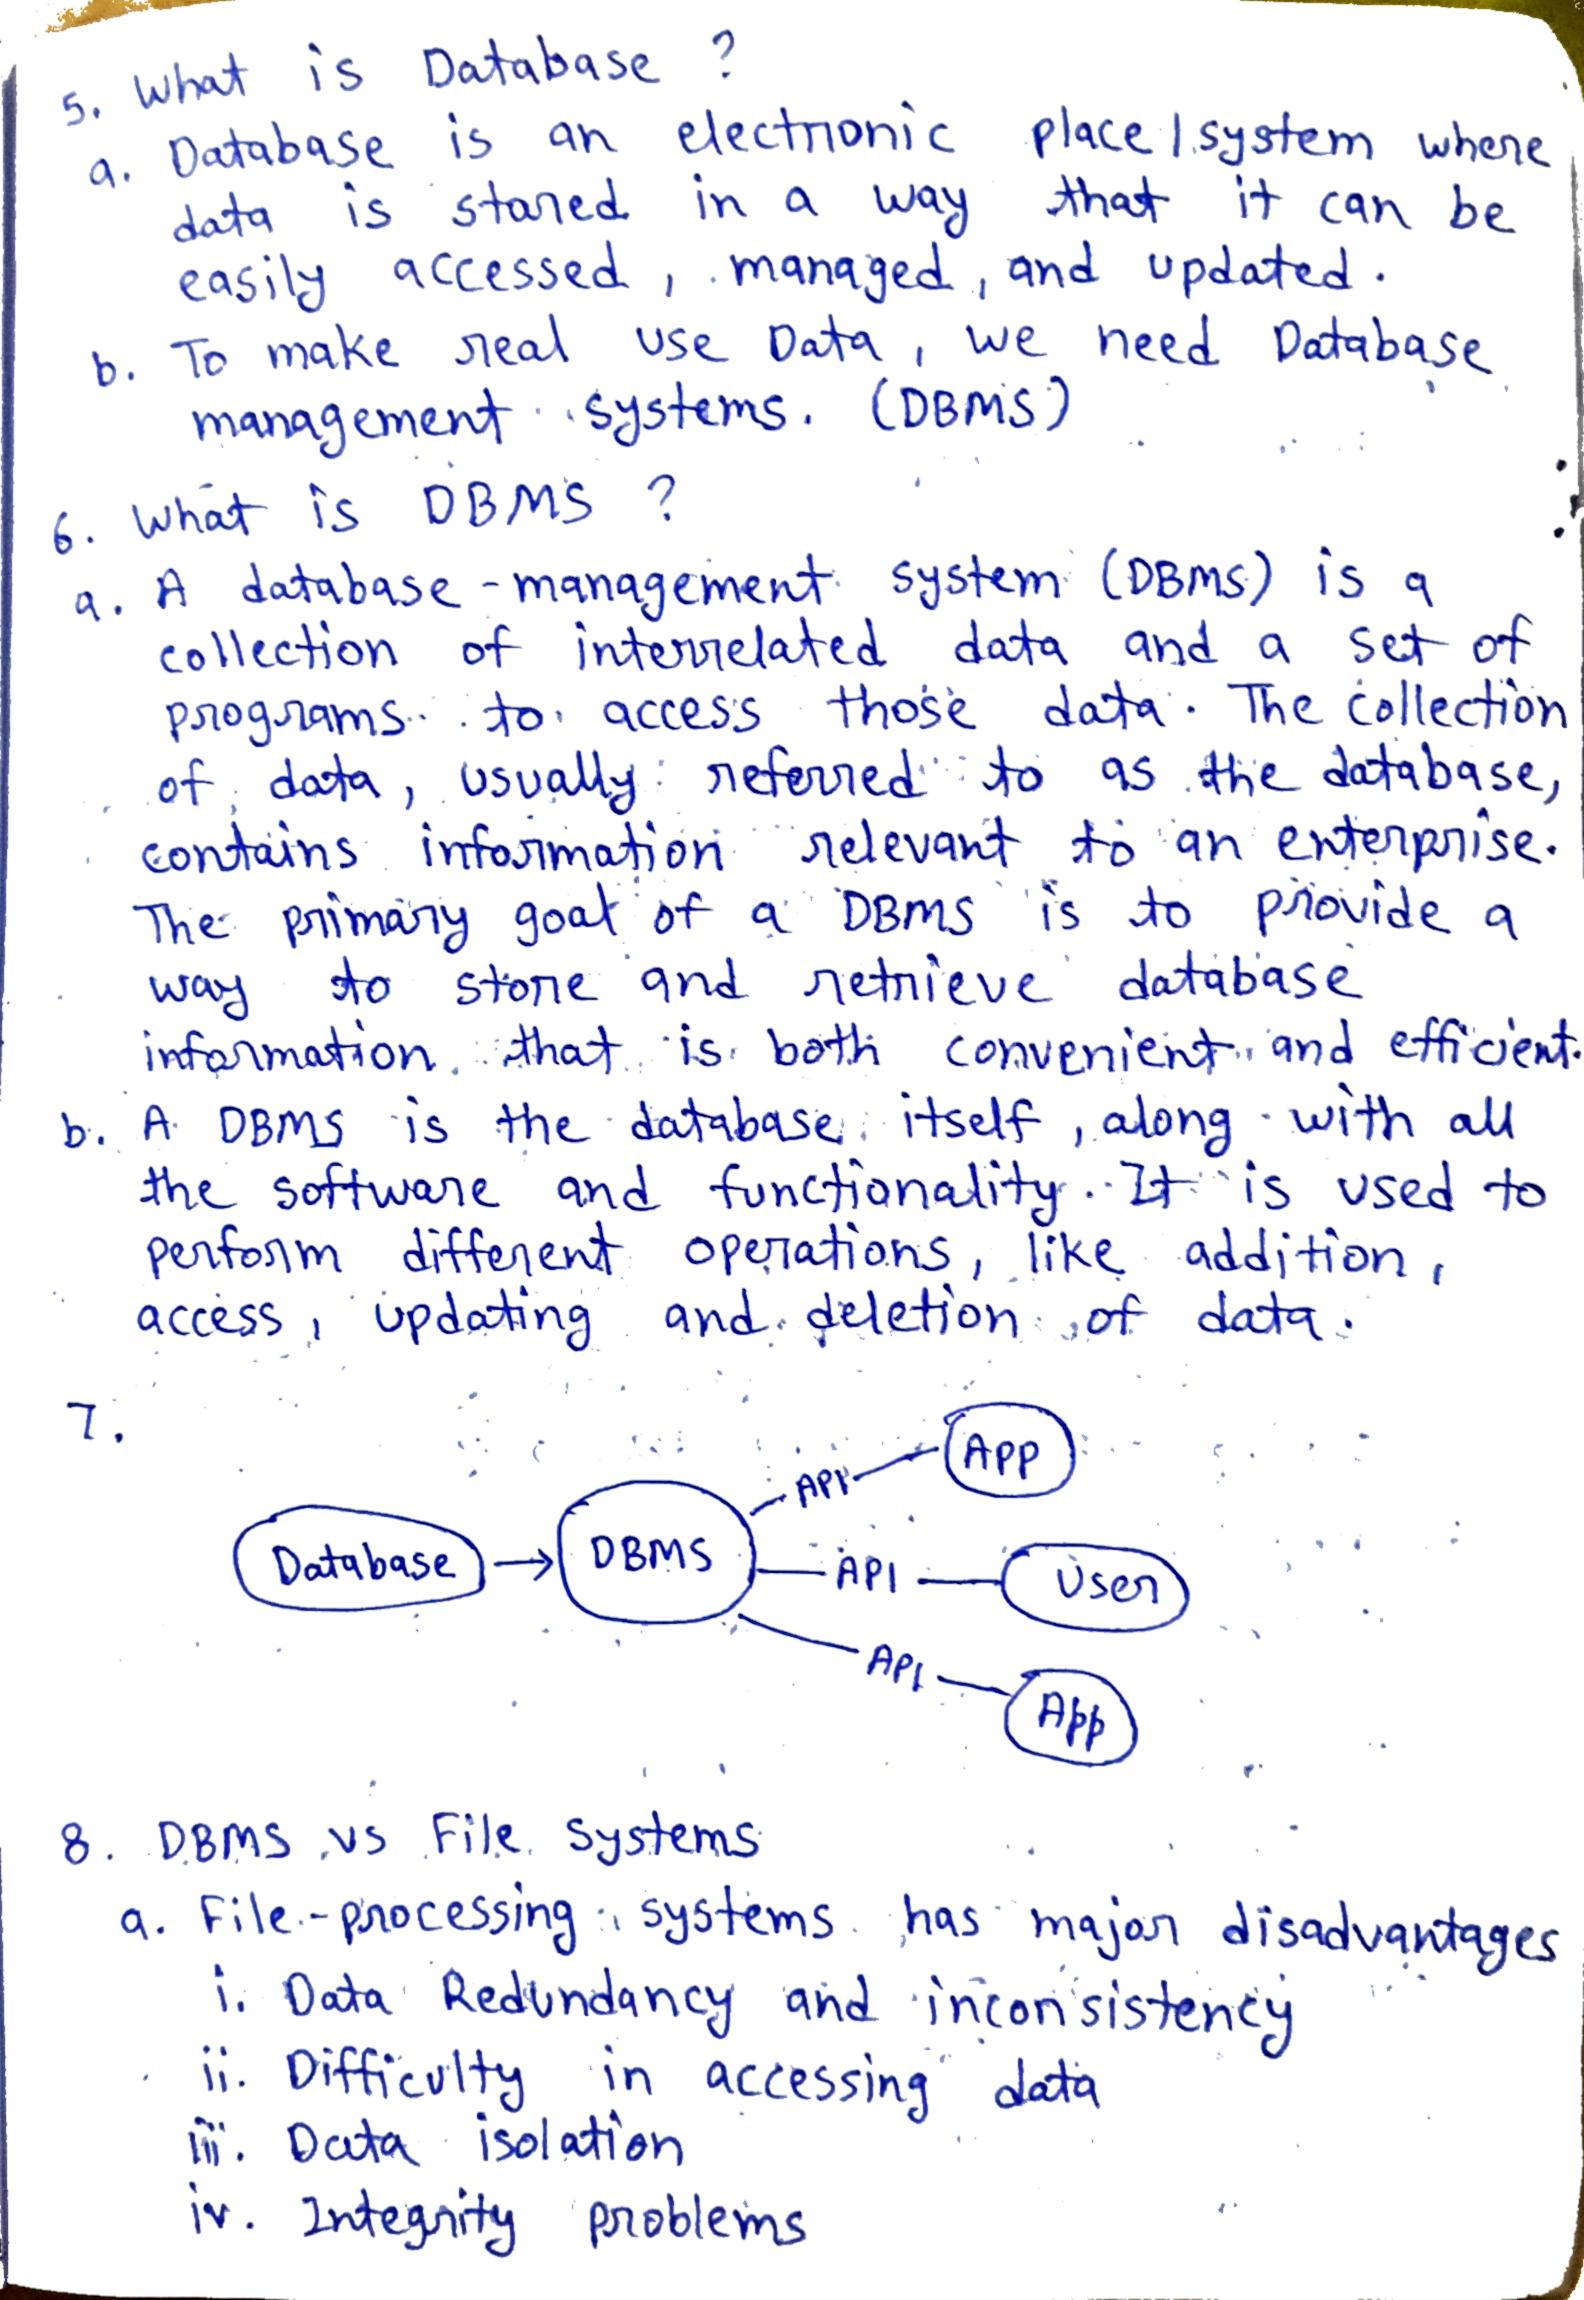 5. What is Database ?
a. Database is an electronic place/system where
data is stored in a way that it can be
easily accessed, managed, and updated.
b. To make real use Data, we need Database
management systems. (DBMS)
6. What is DBMS ?
a. A database-management system (DBMS) is a
collection of interrelated data and a set of
programs to access those data. The collection
of data, usually referred to as the database,
contains information relevant to an enterprise.
The primary goal of a DBMS is to provide a
way to store and retrieve database
information that is both convenient and efficient.
b. A DBMS is the database itself, along with all
the software and functionality. It is used to
perform different operations, like addition,
access, updating and deletion of data.
7.
API App
Database → DBMS API User
API App
8. DBMS vs File systems
a. File-processing systems has major disadvantages
i. Data Redundancy and inconsistency
ii. Difficulty in accessing data
iii. Data isolation
iv. Integrity problems